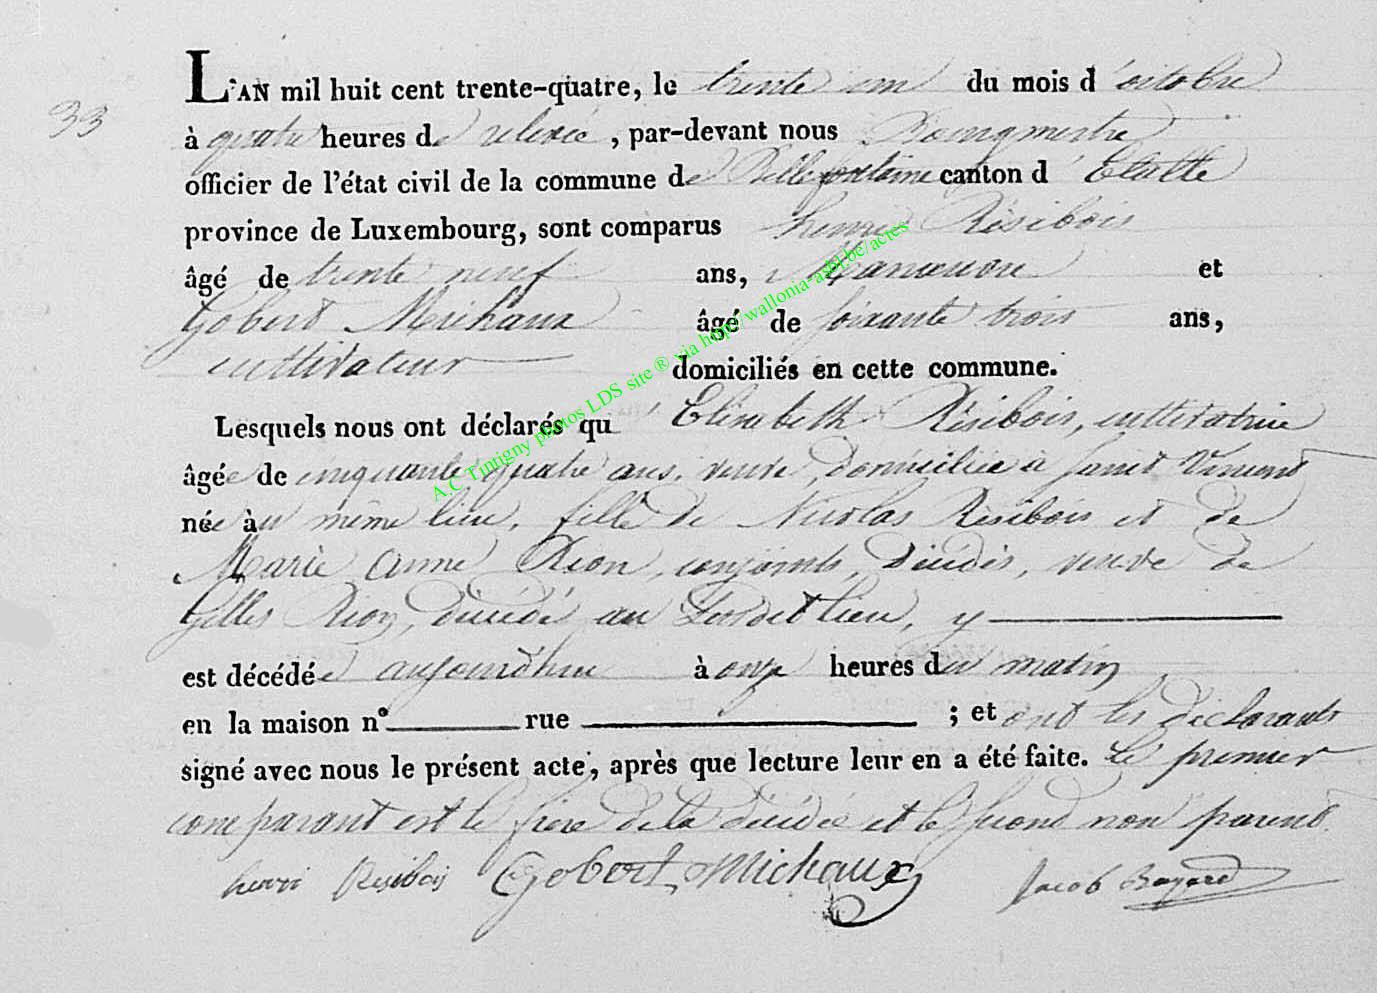 33
L'AN mil huit cent trente-quatre, le trente un du mois d'octobre
à quatre heures de relevée, par-devant nous Bourgmestre
officier de l'état civil de la commune de Bellefontaine canton d'Etalle
province de Luxembourg, sont comparus henri Résibois
âgé de trente neuf ans, Manœuvre et
Gobert Michaux âgé de soixante trois ans,
cultivateur domiciliés en cette commune.
Lesquels nous ont déclarés qu'Elisabeth Résibois, cultivatrice
âgée de cinquante quatre ans, veuve, domiciliée à Saint Vincent
née au même lieu, fille de Nicolas Résibois et de
Marie Anne Rion, conjoints, décédés, veuve de
Gilles Rion, décédé au susdit lieu, y
est décédée aujourd'hui à onze heures du matin
en la maison n° rue ; et ont les déclarants
signé avec nous le présent acte, après que lecture leur en a été faite. Le premier
comparant est le frère de la décédée et le second non parent.
henri Résibois Gobert Michaux Jacob Bayard
A.C Tintigny photos LDS site ® via http://wallonia-asbl.be/actes